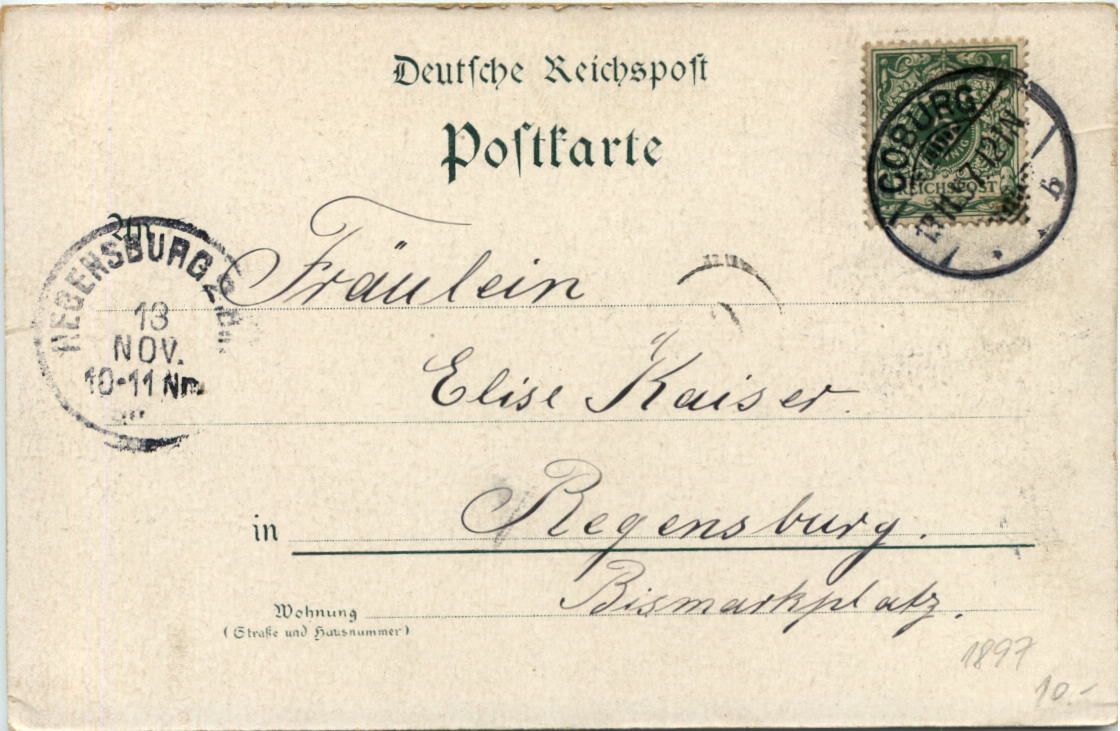 Deutsche Reichspost
Postkarte
COBURG
REICHSPOST
b
An
REGENSBURG
13
NOV.
10-11 Nm.
Fräulein
Elise Kaiser.
in Regensburg.
Wohnung Bismarkplatz.
(Straße und Hausnummer)
1897
10.-